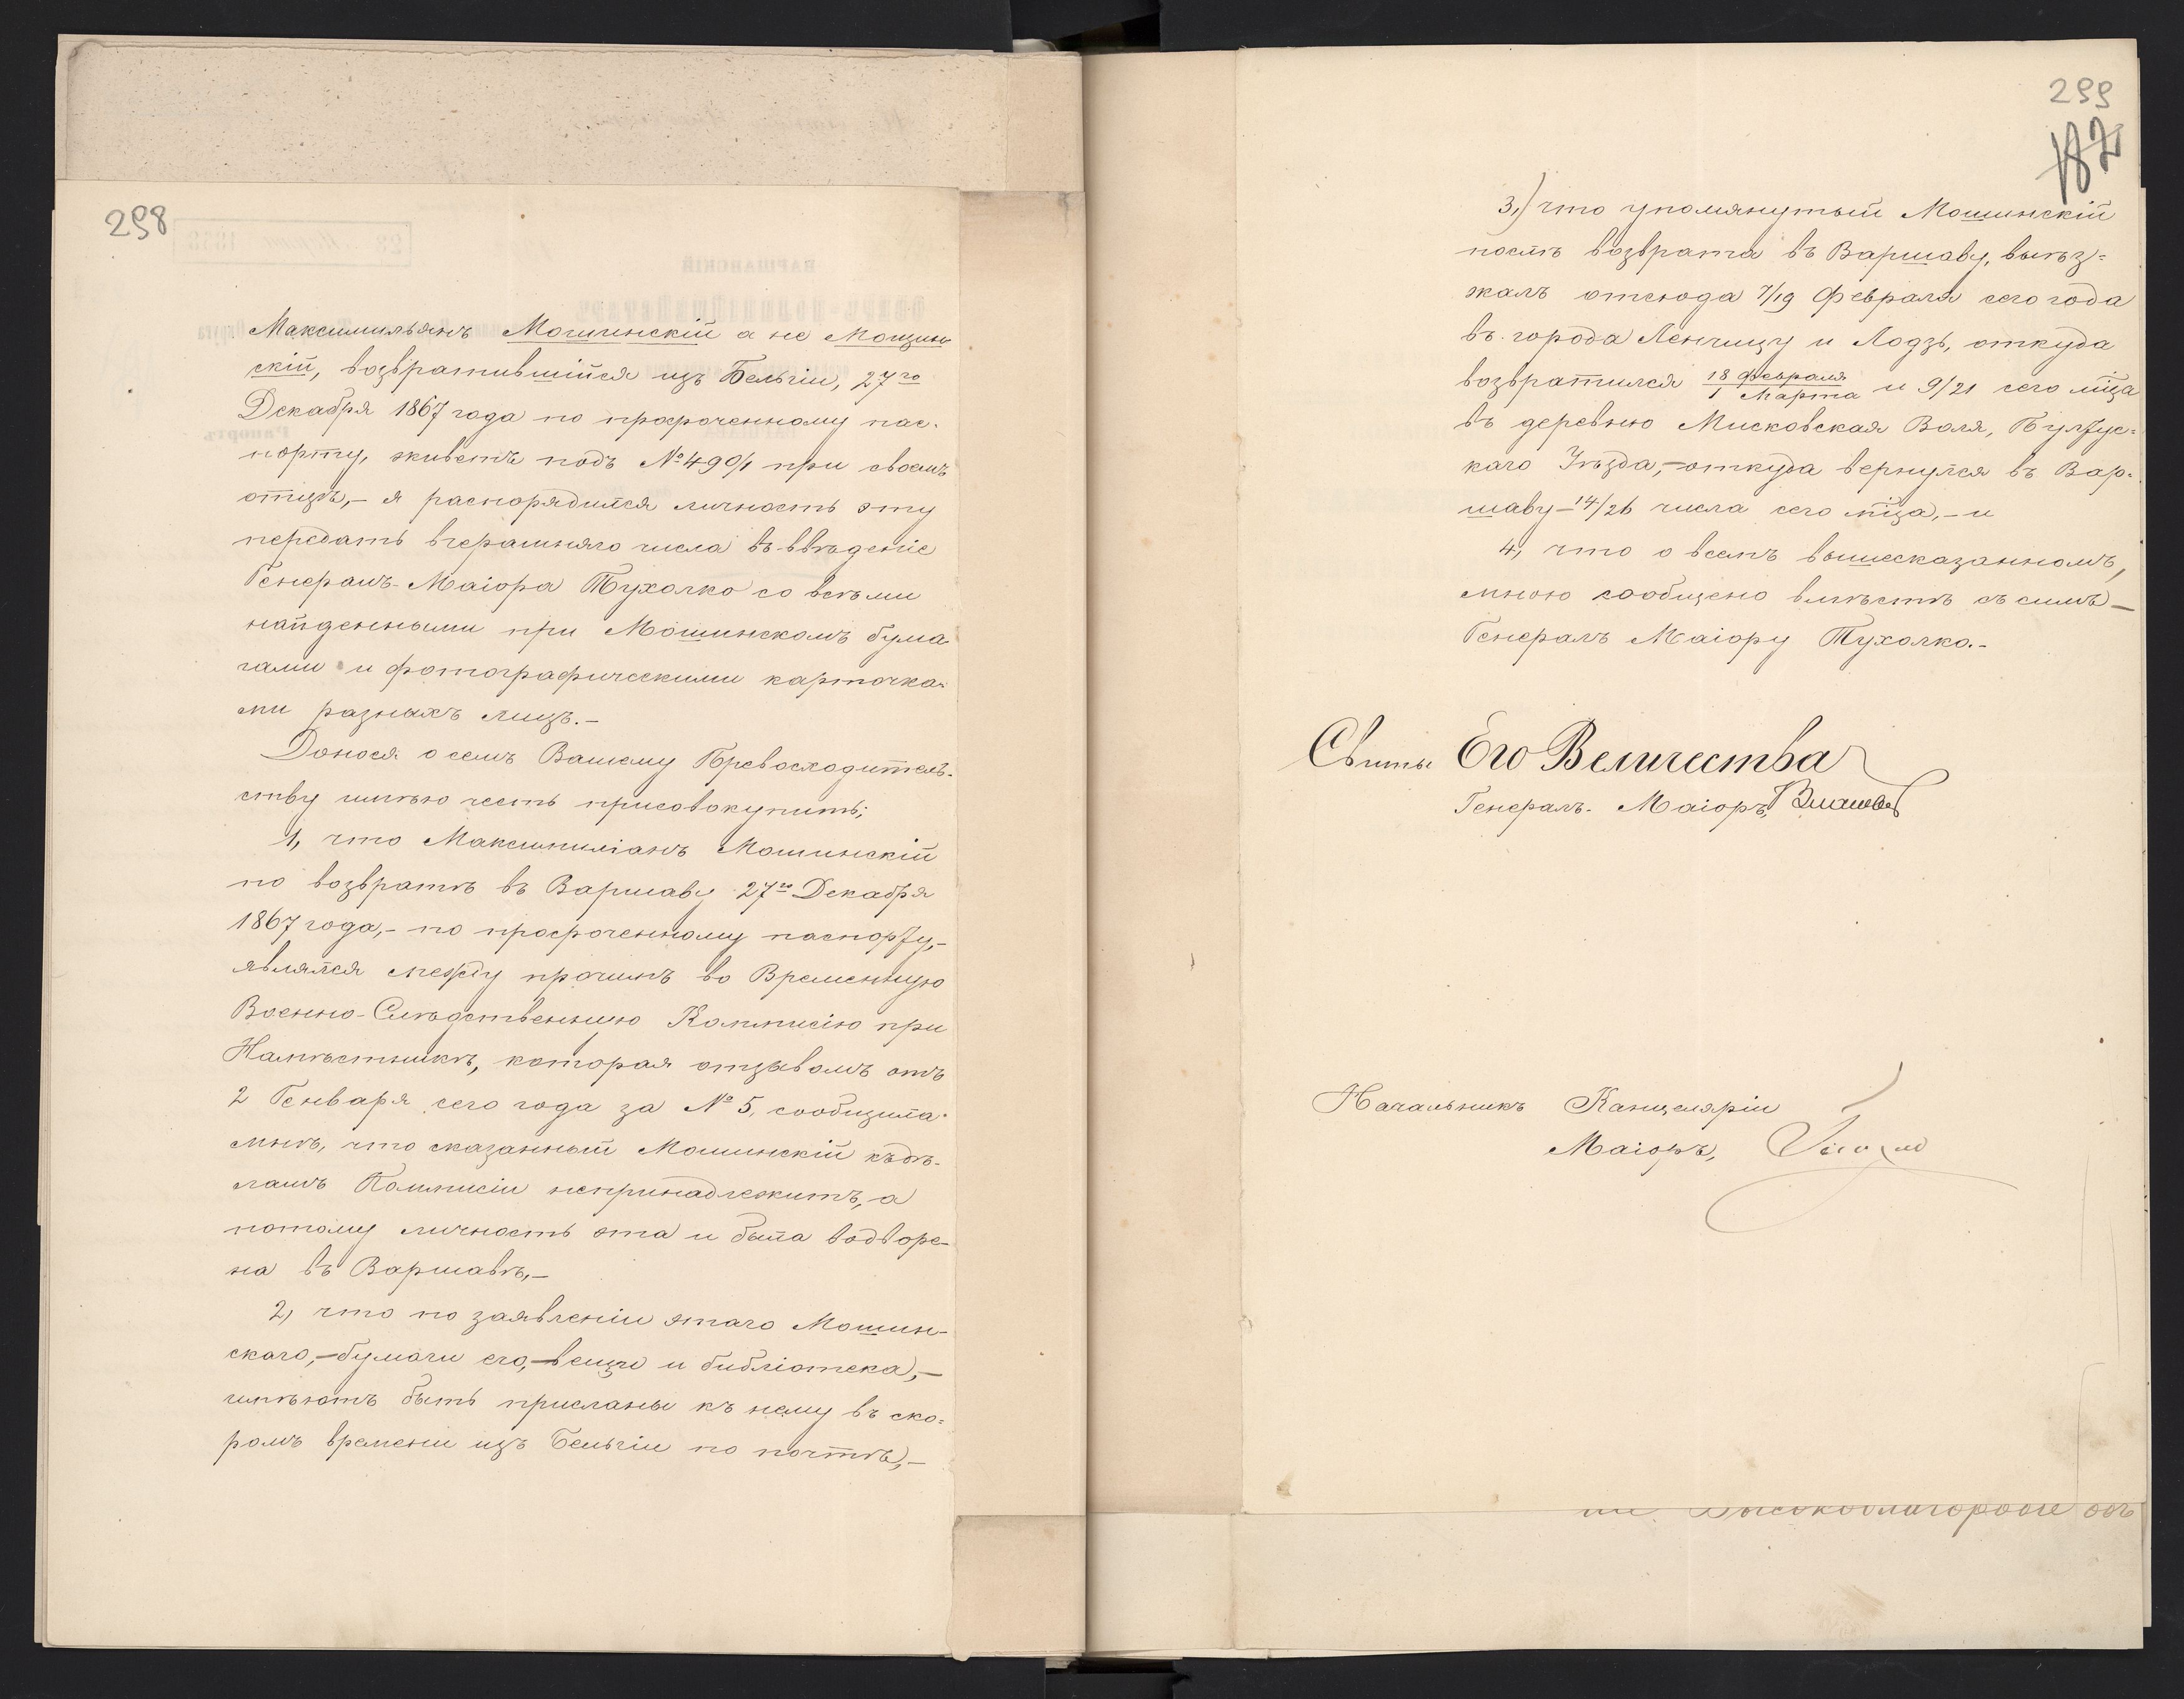 298
Максимильянъ Мошинскій а не Мощин
скій, возвратившійся изъ Бельгіи, 27го
Декабря 1867 года по просроченному пас-
порту, живетъ подъ № 490/1 при своемъ
отцѣ,- я распорядился личность эту
передать вчерашняго числа въ вѣденіе
Генералъ-Маіора Тухолко со всѣми
найденными при Мошинскомъ бума
гами и фотографическими карточка-
ми разныхъ лицъ.-
Донося о семъ Вашему Превосходитель-
ству имѣю честь присовокупить;
1, что Максимиліанъ Мошинскій
по возвратѣ въ Варшаву 27го Декабря
1867 года,- по просроченному паспорту,-
являлся между прочимъ во Временную
Военно-Слѣдственную Коммисію при
Намѣстникѣ, которая отзывомъ отъ
2 Генваря сего года за № 5, сообщила
мнѣ, что сказанный Мошинскій къ дѣ-
ламъ Коммисіи непринадлежитъ, а
потому личность эта и была водворе-
на въ Варшавѣ,-
2, что по заявленіи этаго Мошин-
скаго,-бумаги его,-вещи и библіотека,-
имѣютъ быть присланы къ нему въ ско-
ромъ времени изъ Бельгіи по почтѣ,-
299
187
3,) что упомянутый Мошинскій
послѣ возврата въ Варшаву, выѣз-
жалъ отсюда 7/19 Февраля сего года
въ города Ленчицу и Лодзь, откуда
возвратился 18 Февраля/1 Марта и 9/21 сего мца
въ деревню Мисковская Воля, Пултус-
каго Уѣзда,-откуда вернулся въ Вар-
шаву-14/26 числа сего мца,-и
4, что о всемъ вышесказанномъ,
мною сообщено вмѣстѣ съ симъ-
Генералъ Маіору Тухолко.-
Свиты Его Величества
Генералъ-Маіоръ, Власовъ
Начальникъ Канцеляріи
Маіоръ,
Высокоблагородіе объ